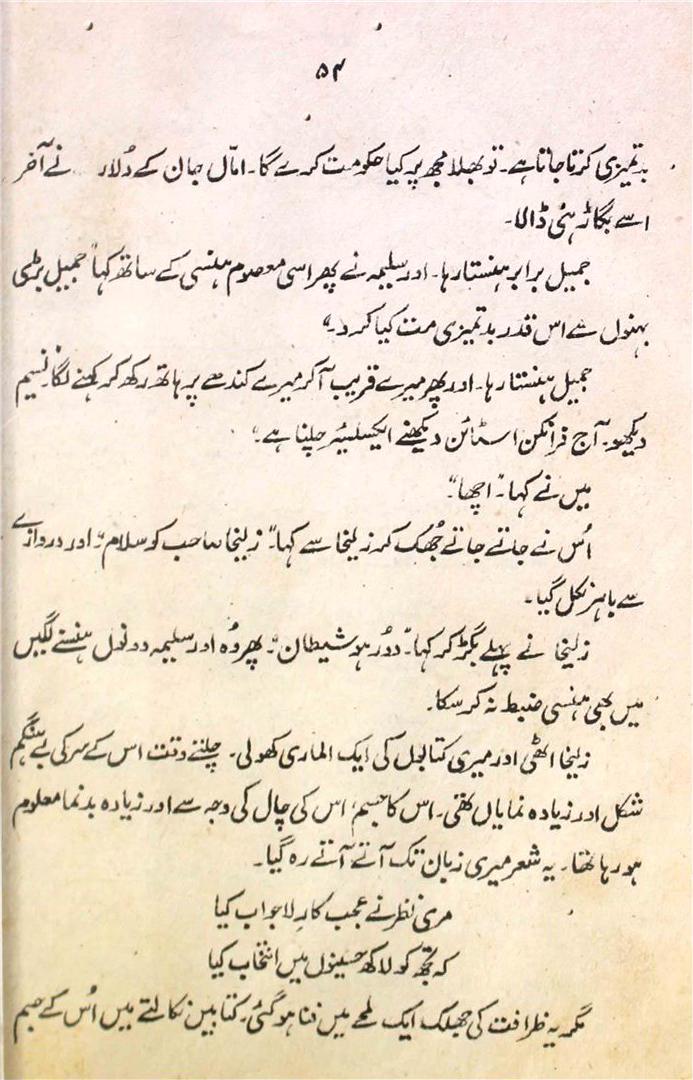 ۵۴
بدتمیزی کرتا جاتا ہے۔ تو بھلا مجھ پر کیا حکومت کرے گا۔ اماں جان کے دُلار نے آخر
اسے بگاڑ ہی ڈالا۔
جمیل برابر ہنستا رہا۔ اور سلیمہ نے پھر اسی معصوم ہنسی کے ساتھ کہا "جمیل بڑی
بہنوں سے اس قدر بدتمیزی مت کیا کرو۔"
جمیل ہنستا رہا۔ اور پھر میرے قریب آکر میرے کندھے پر ہاتھ رکھ کر کہنے لگا۔ نسیم
دیکھو۔ آج فرانکن اسٹائن دیکھنے ایکسلسیئر چلنا ہے۔"
میں نے کہا۔ "اچھا۔"
اُس نے جاتے جاتے جُھک کر زلیخا سے کہا۔ "زلیخا صاحب کو سلام"۔ اور دروازے
سے باہر نکل گیا۔
زلیخا نے پہلے بگڑ کر کہا۔ "دُور ہو شیطان"۔ پھر وُہ اور سلیمہ دونوں ہنسنے لگیں
میں بھی ہنسی ضبط نہ کر سکا۔
زلیخا اٹھی اور میری کتابوں کی ایک الماری کھولی۔ چلتے وقت اس کے سر کی بے ہنگم
شکل اور زیادہ نمایاں تھی۔ اس کا جسم، اس کی چال کی وجہ سے اور زیادہ بدنما معلوم
ہو رہا تھا۔ یہ شعر میری زبان تک آتے آتے رہ گیا۔
مری نظر نے عجب کارِ لاجواب کیا
کہ تجھ کو لاکھ حسینوں میں انتخاب کیا
مگر یہ ظرافت کی جھلک ایک لمحے میں فنا ہو گئی۔ کتابیں نکالتے میں اُس کے جسم